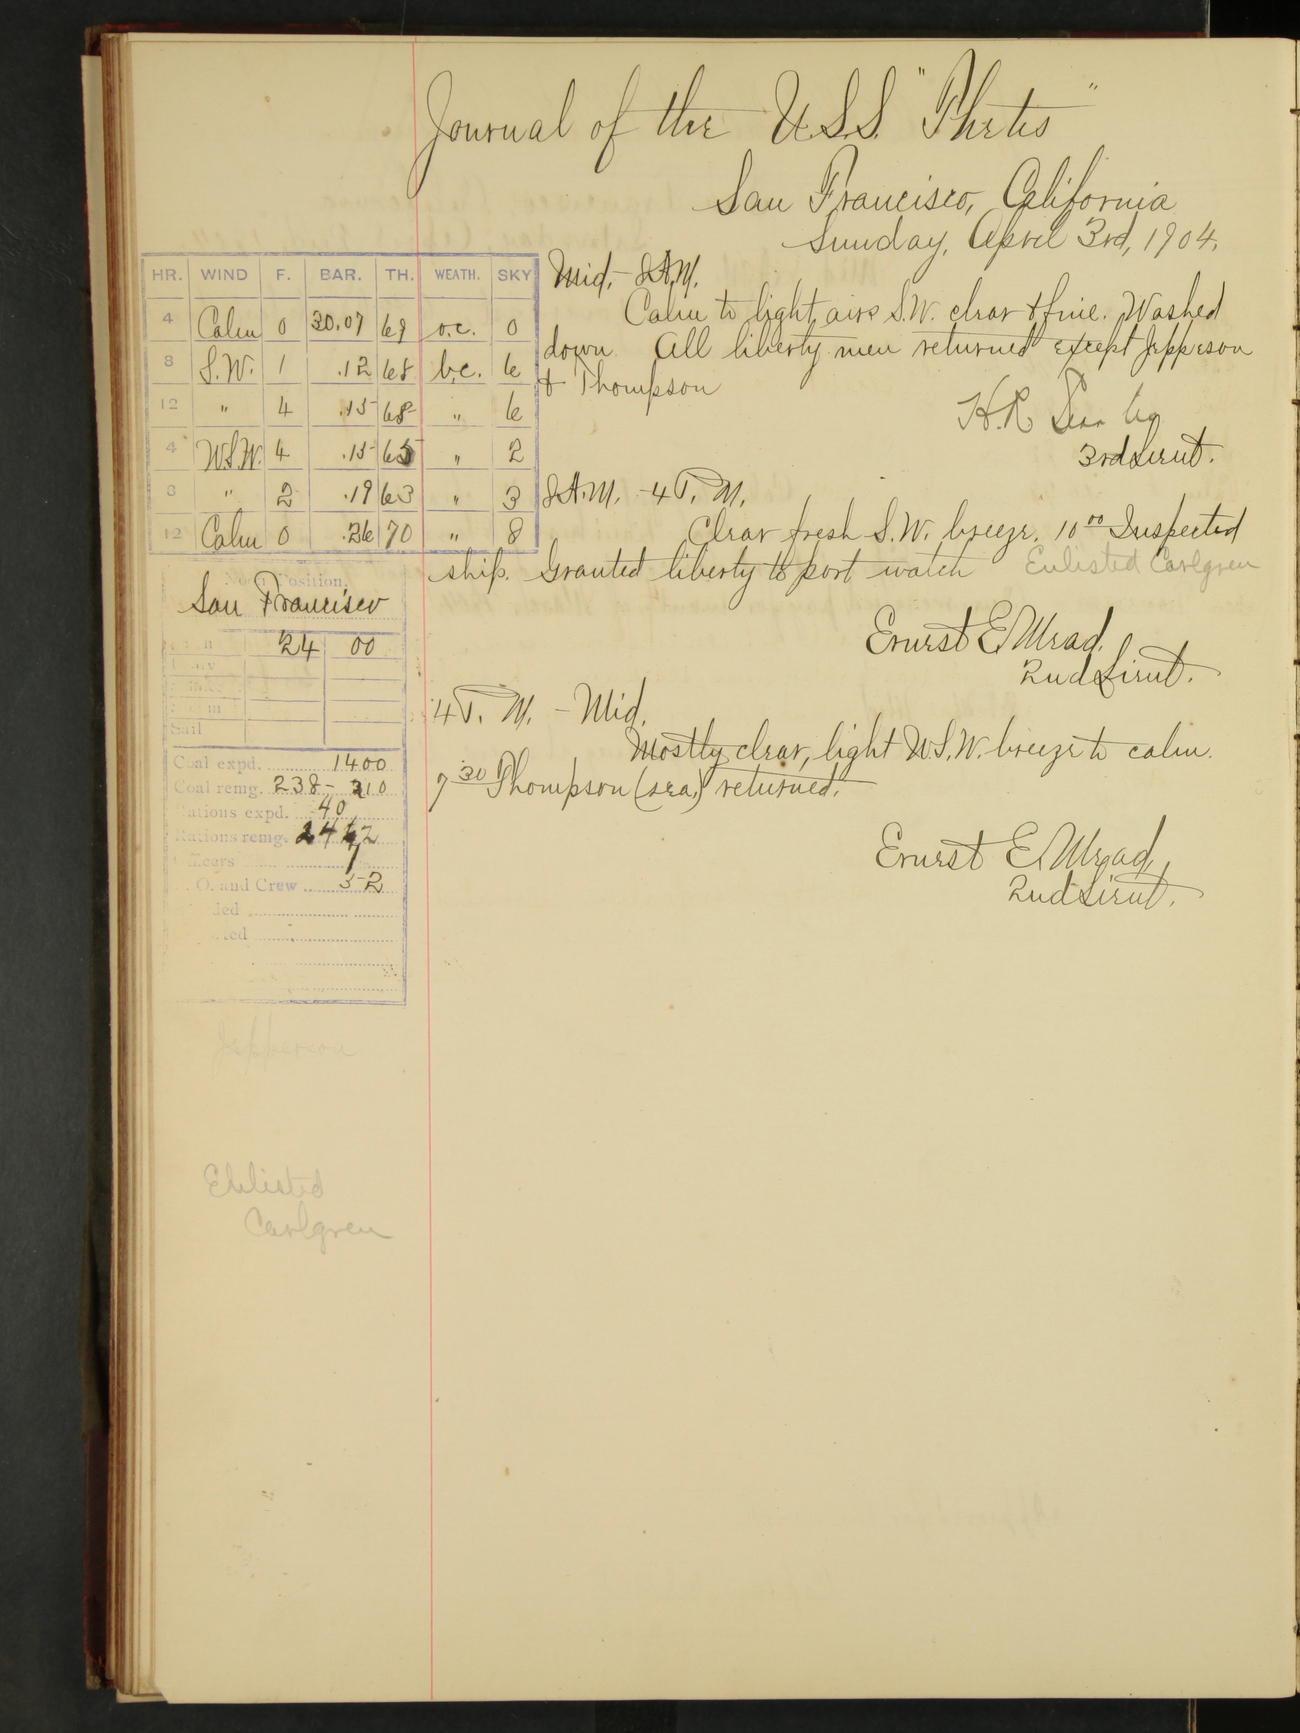 Journal of the U.S.S. "Thetis"
San Francisco, California
Sunday, April 3rd, 1904.
HR. WIND F. BAR. TH. WEATH. SKY
4 Calm 0 30.07 69 o.c. 0
8 S.W. 1 .12 68 b.c. 6
12 " 4 .15 68 " 6
4 W.S.W. 4 .15 65 " 2
8 " 2 .19 63 " 3
12 Calm 0 .26 70 " 8
Mid. - 8 A.M.
Calm to light airs S.W. clear & fine. Washed
down. All liberty men returned except Jepperson
& Thompson
H.R.
3rd Lieut.
8 A.M. - 4 P.M.
Clear fresh S.W. breeze. 10 00 Inspected
ship. Granted liberty to port watch Enlisted Carlgren
Ernest E. Mead.
2nd Lieut.
4 P.M. - Mid.
Mostly clear, light W.S.W. breeze to calm.
7 30 Thompson (sea.) returned.
Ernest E. Mead,
2nd Lieut.
Noon Position.
San Francisco
24 00
Sail
Coal expd. 1400
Coal remg. 238 - 210
Rations expd. 40
Rations remg.
Officers 7
O. and Crew 52
Jepperson
Enlisted
Carlgren